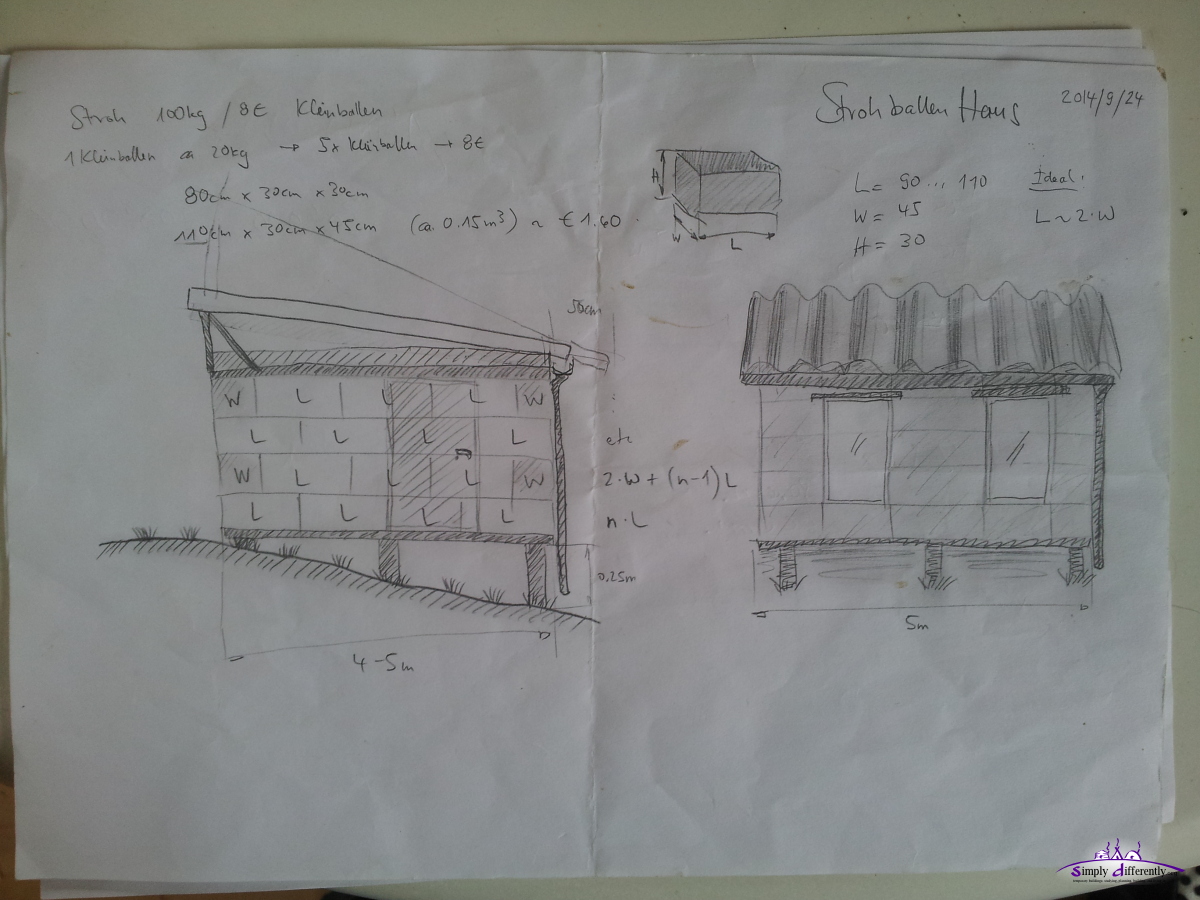 Stroh 100kg / 8€ Kleinballen
1 Kleinballen ca 20kg → 5x Kleinballen → 8€
80cm x 30cm x 30cm
110cm x 30cm x 45cm (ca. 0.15m³) ~ € 1.60
Strohballen Haus
2014/9/24
H
W
L
L = 90 ... 110
W = 45
H = 30
Ideal:
L ~ 2·W
50cm
W L L L W
L L L L
W L L L W
L L L L
:
etc
2·W + (n-1) L
n·L
0.25m
4-5m
5m
Simply differently